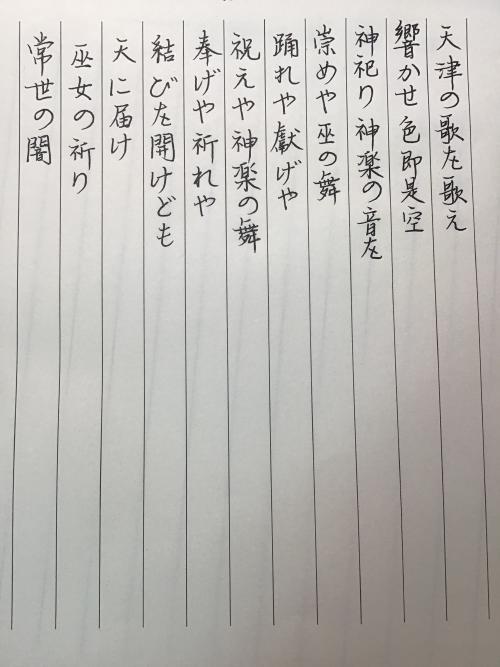 天津の歌を歌え
響かせ色即是空
神祀り神楽の音を
崇めや巫の舞
踊れや獻げや
祝えや神楽の舞
奉げや祈れや
結びを開けども
天に届け
巫女の祈り
常世の闇